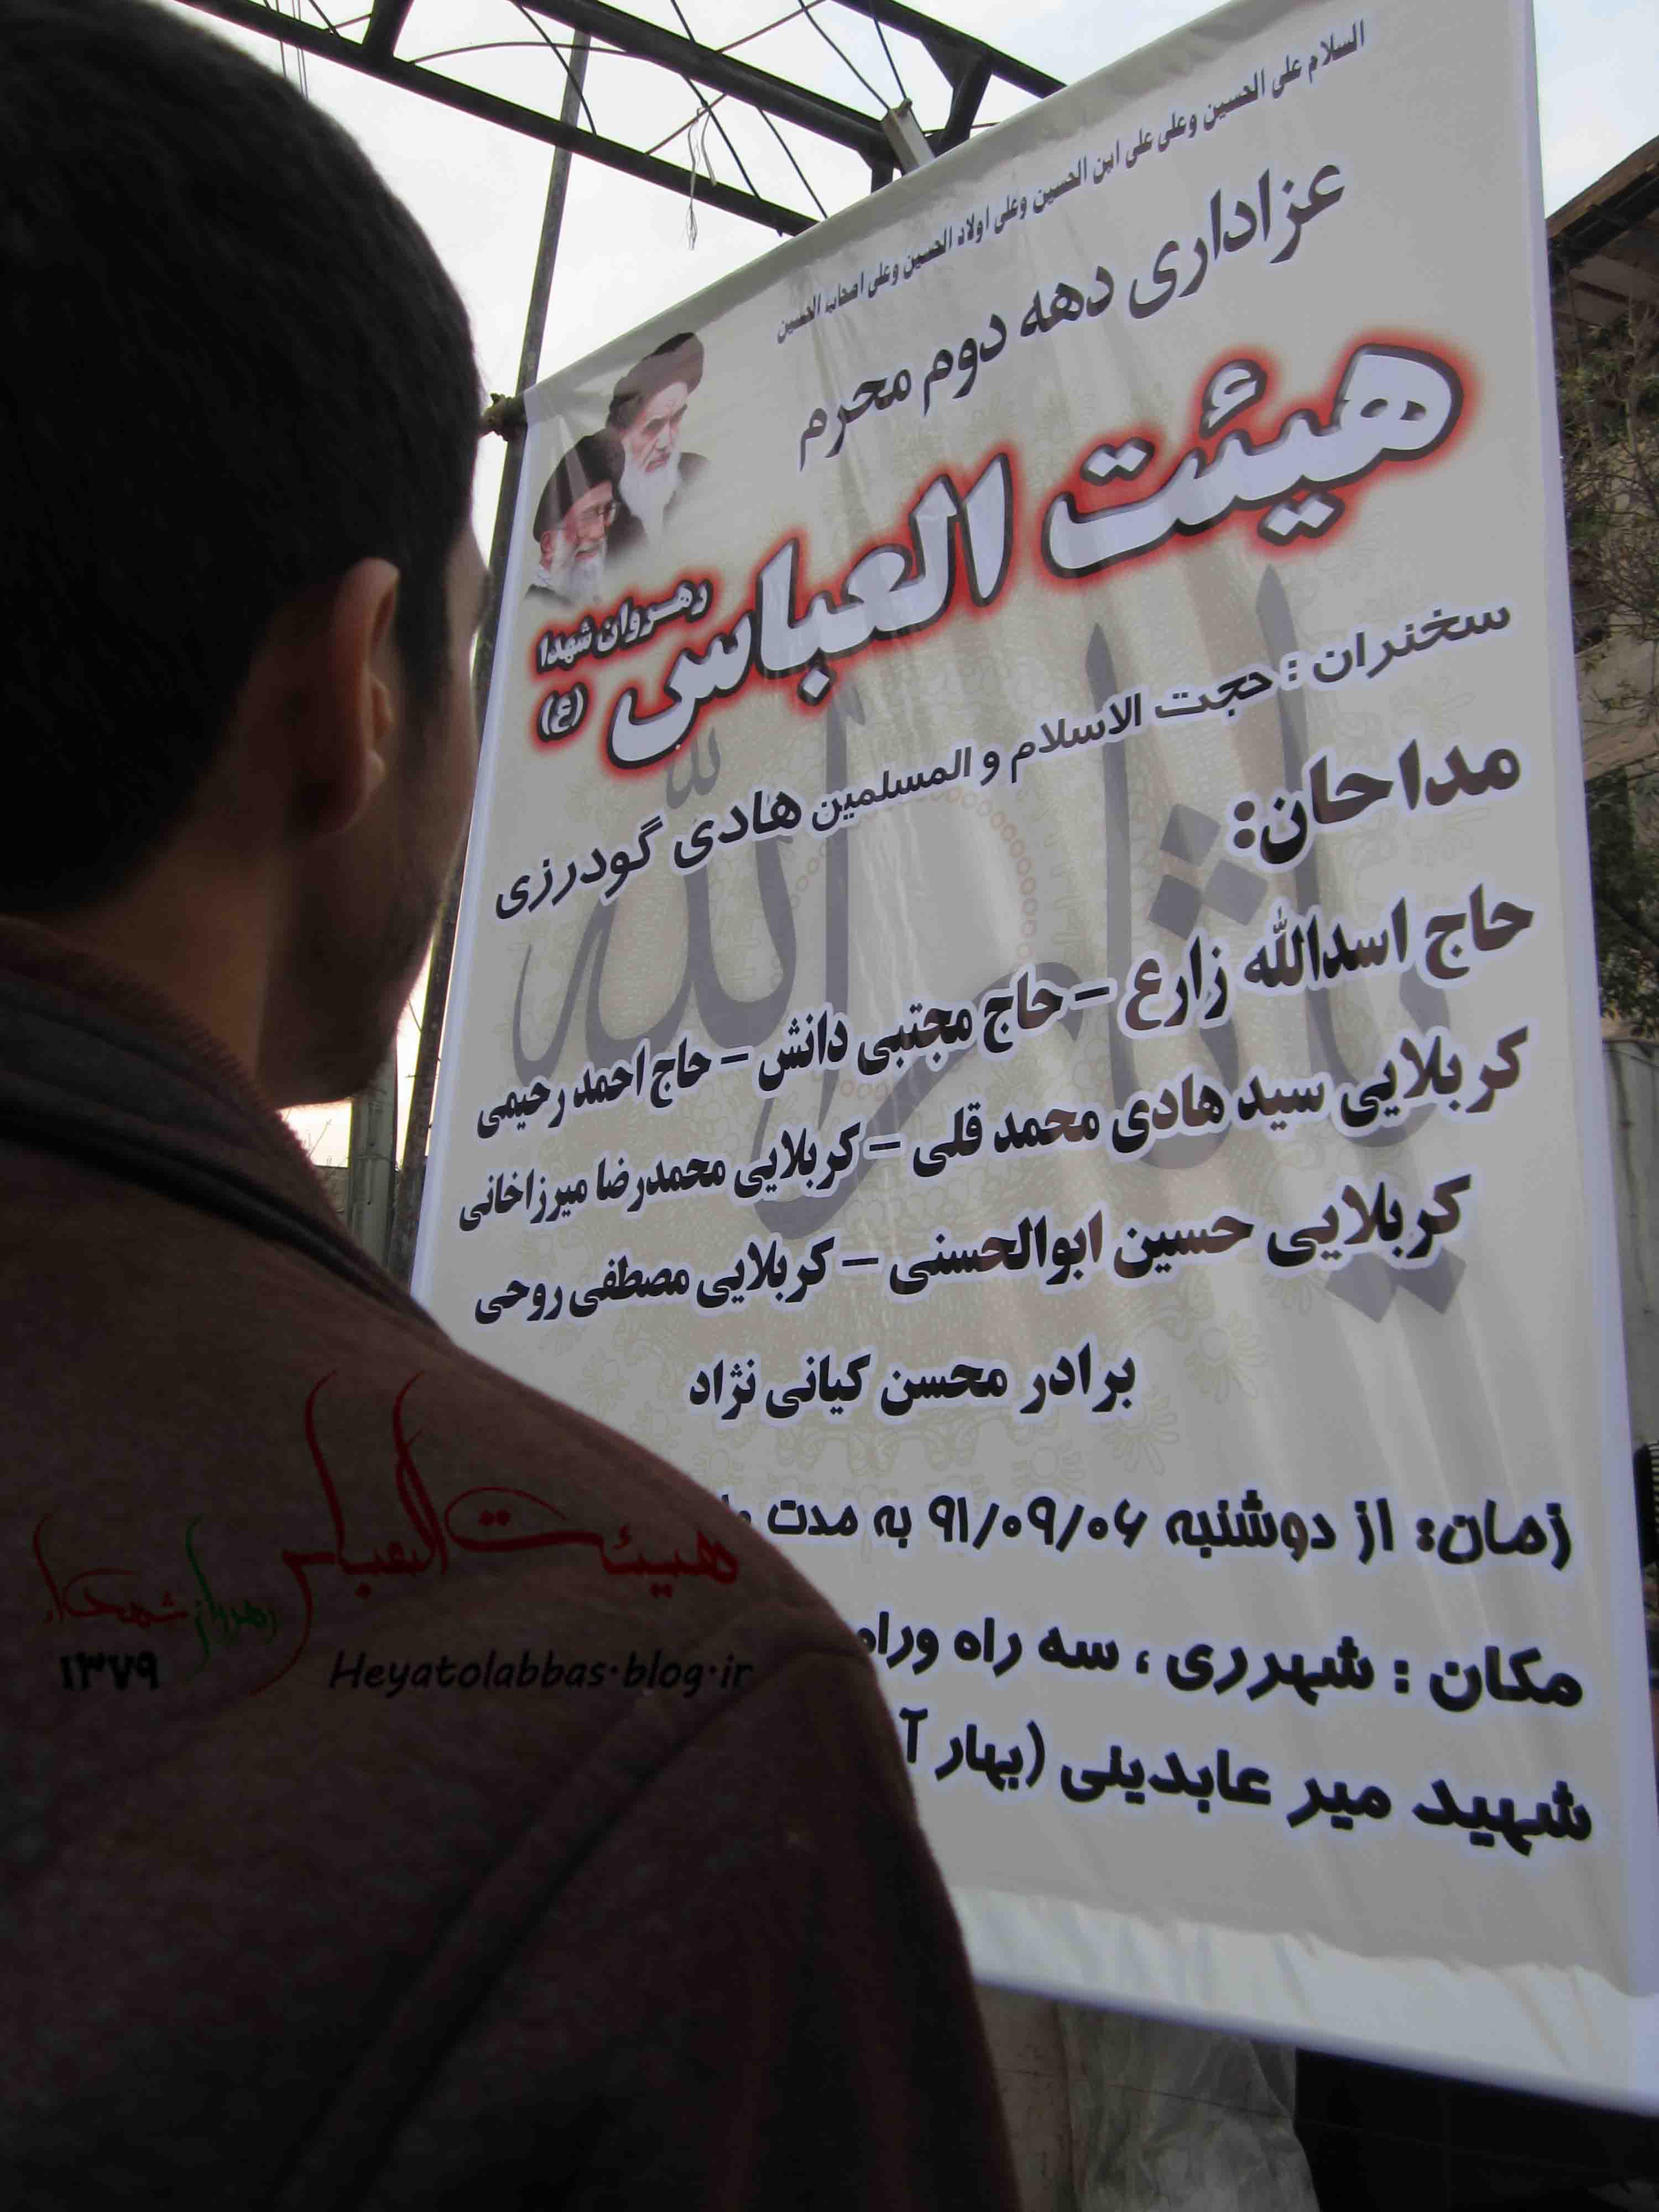 السلام علی الحسین وعلی علی ابن الحسین وعلی اولاد الحسین وعلی اصحاب الحسین
عزاداری دهه دوم محرم
هیئت العباس (ع)
رهروان شهدا
سخنران : حجت الاسلام و المسلمین هادی گودرزی
مداحان:
حاج اسدالله زارع - حاج مجتبی دانش - حاج احمد رحیمی
کربلایی سید هادی محمد قلی - کربلایی محمدرضا میرزاخانی
کربلایی حسین ابوالحسنی - کربلایی مصطفی روحی
برادر محسن کیانی نژاد
زمان: از دوشنبه ۹۱/۰۹/۰۶ به مدت
مکان : شهرری ، سه راه ورام
شهید میر عابدینی (بهار آ
یا ثارالله
هیئت العباس
رهروان شهدا
۱۳۷۹
Heyatolabbas.blog.ir